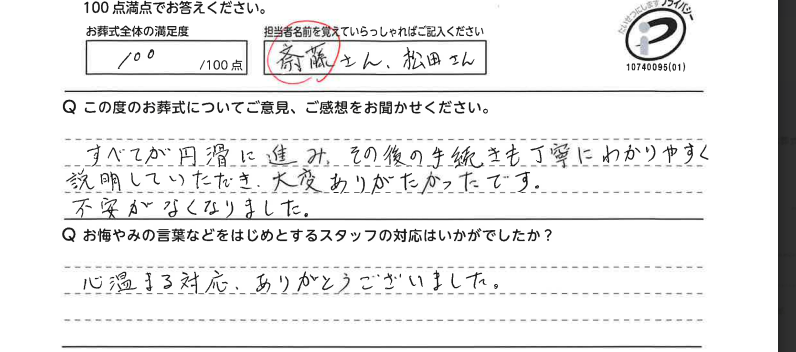 100点満点でお答えください。
お葬式全体の満足度
100 /100点
担当者名前を覚えていらっしゃればご記入ください
斎藤さん、松田さん
たいせつにします プライバシー
10740095(01)
Q この度のお葬式についてご意見、ご感想をお聞かせください。
すべてが円滑に進み、その後の手続きも丁寧にわかりやすく
説明していただき、大変ありがたかったです。
不安がなくなりました。
Q お悔やみの言葉などをはじめとするスタッフの対応はいかがでしたか？
心温まる対応、ありがとうございました。